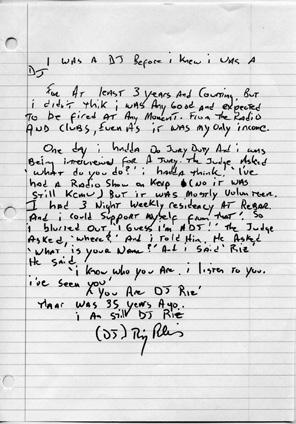 I WAS A DJ BEFORE i KNEW i WAS A
DJ
FOR AT LEAST 3 years AND COUNTING BUT
i DIDN'T THIK i WAS ANY GOOD AND EXPECTED
TO BE FIRED AT ANY MOMENT. FROM THE RADIO
AND CLUBS, EVEN AS IT WAS MY ONLY INCOME.
ONE DAY i HADDA DO JURY DUTY AND i WAS
BEING INTERVIEWED FOR A JURY. THE JUDGE ASKED
'WHAT DO YOU DO?' i HADDA THINK. 'I'VE
HAD A RADIO SHOW ON KCMU (NO IT WAS
STILL KCMU) BUT IT WAS MOSTLY VOLUNTEER.
I HAD 3 NIGHT WEEKLY RESIDENCY AT REBAR.
AND i COULD SUPPORT MYSELF FROM THAT'. SO
I BLURTED OUT 'I GUESS I'M A DJ!' THE JUDGE
ASKED, 'WHERE?' AND i TOLD HIM. HE ASKED
'WHAT IS YOUR NAME?' AND I SAID 'RIZ'
HE SAID
'i KNOW WHO YOU ARE. i LISTEN TO YOU.
i'VE SEEN YOU'
'YOU ARE DJ RIZ'
THAT WAS 35 YEARS AGO.
i AM STILL DJ RIZ
(DJ) Riz